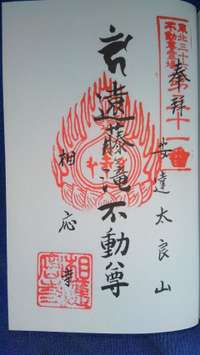 東北三十六
不動尊霊場
三十一番
奉拝
安達太良山
遠藤滝不動尊
相応寺